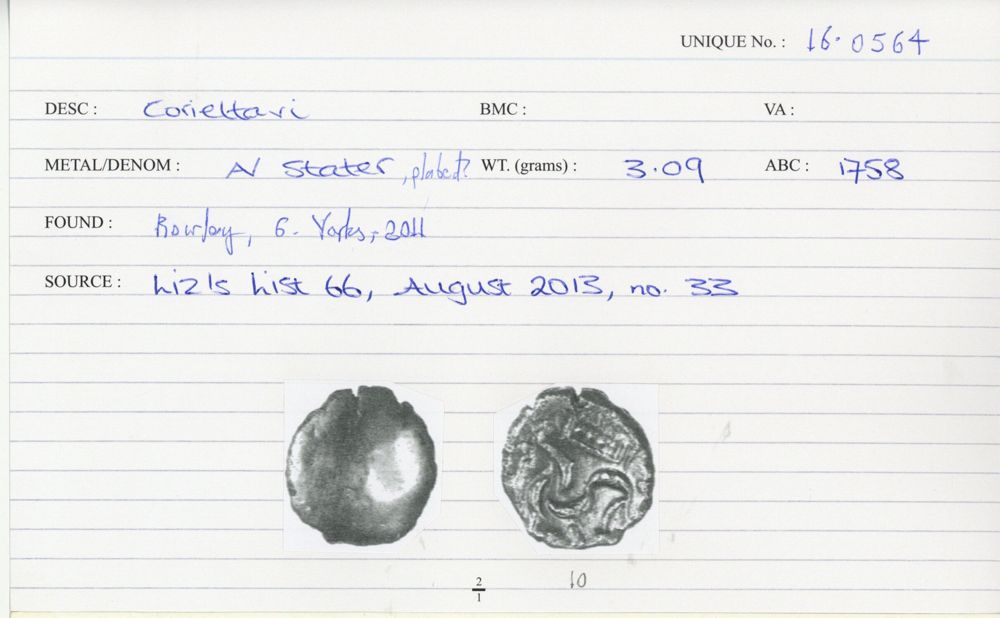 UNIQUE No. : 16.0564
DESC : Corieltavi BMC : VA :
METAL/DENOM : AV Stater, plated? WT. (grams) : 3.09 ABC : 1758
FOUND : Rowley, E. Yorks, 2011
SOURCE : Liz's List 66, August 2013, no. 33
2/1 10